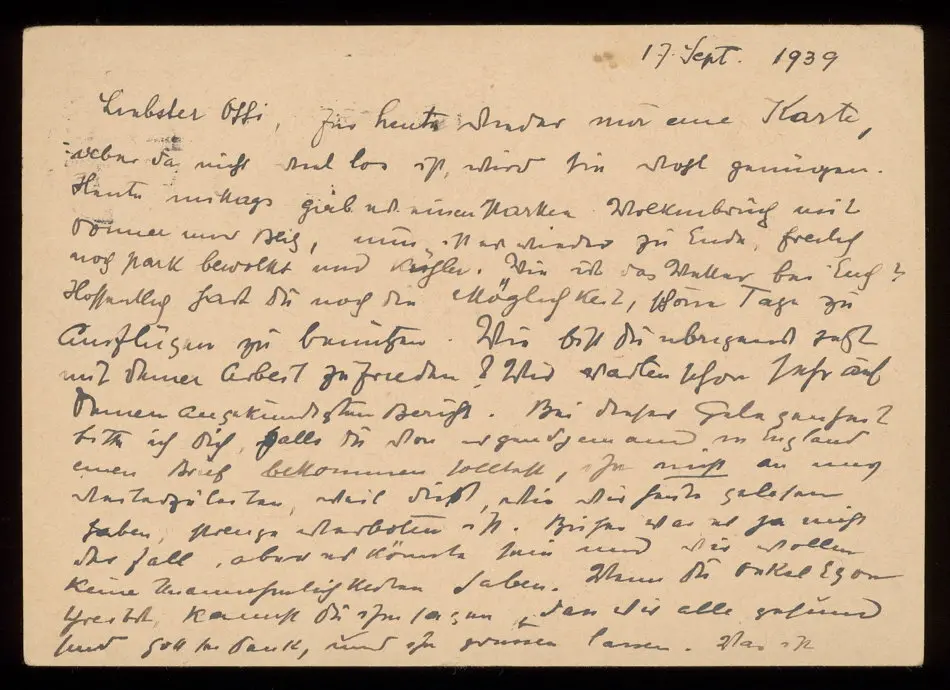 17. Sept. 1939
Liebster Ossi, für heute wieder nur eine Karte,
aber da nicht viel los ist, wird sie wohl genügen.
Heute mittags gab es einen starken Wolkenbruch mit
Donner und Blitz, nun ist es wieder zu Ende, freilich
noch stark bewölkt und kühler. Wie ist das Wetter bei Euch?
Hoffentlich hast du noch die Möglichkeit, schöne Tage zu
Ausflügen zu benützen. Wie bist du übrigens jetzt
mit deiner Arbeit zufrieden? Wir warten schon sehr auf
Deinen angekündigten Bericht. Bei dieser Gelegenheit
bitte ich dich, falls du von irgendjemand in England
einen Brief bekommen solltest, ihn nicht an uns
weiterzuleiten, weil dies, wie wir heute gelesen
haben, strenge verboten ist. Bisher war es ja nicht
der Fall, aber es könnte sein und wir wollen
keine Unannehmlichkeiten haben. Wenn du Onkel Egon
schreibst, kannst du ihm sagen, dass wir alle gesund
sind Gott sei Dank, und ihn grüssen lassen. Was ist